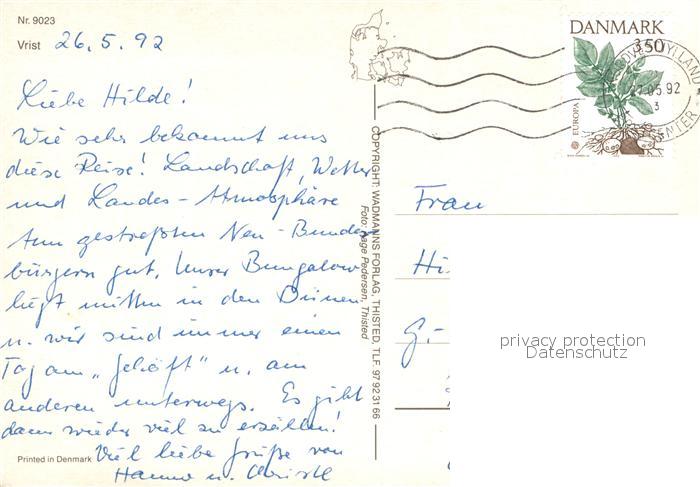 Nr. 9023
Vrist 26.5.92
Liebe Hilde!
Wie sehr bekommt uns
diese Reise! Landschaft, Wetter
und Landes-Atmosphäre
tun gestreßten Neu-Bundes
bürgern gut. Unser Bungalow
liegt mitten in den Dünen
u. wir sind immer einen
Tag am "Gehöft" u. am
anderen unterwegs. Es gibt
dann wieder viel zu erzählen!
Viel liebe Grüße von
Hanno u.
Printed in Denmark
COPYRIGHT: WADMANNS FORLAG, THISTED, TLF. 97923166
Foto: Aage Pedersen, Thisted
DANMARK
3.50
EUROPA
27.05.92
CENTER
Frau
Hi
G.-
privacy protection
Datenschutz